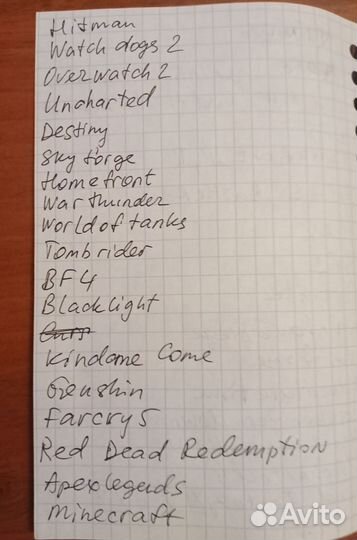 Hitman
Watch dogs 2
Overwatch 2
Unaharted
Destiny
Sky forge
Homefront
War thunder
World of tanks
Tomb rider
BF4
Blacklight
Kindome Come
Genshin
Farcry 5
Red Dead Redemption
Apex legends
minecraft
Avito